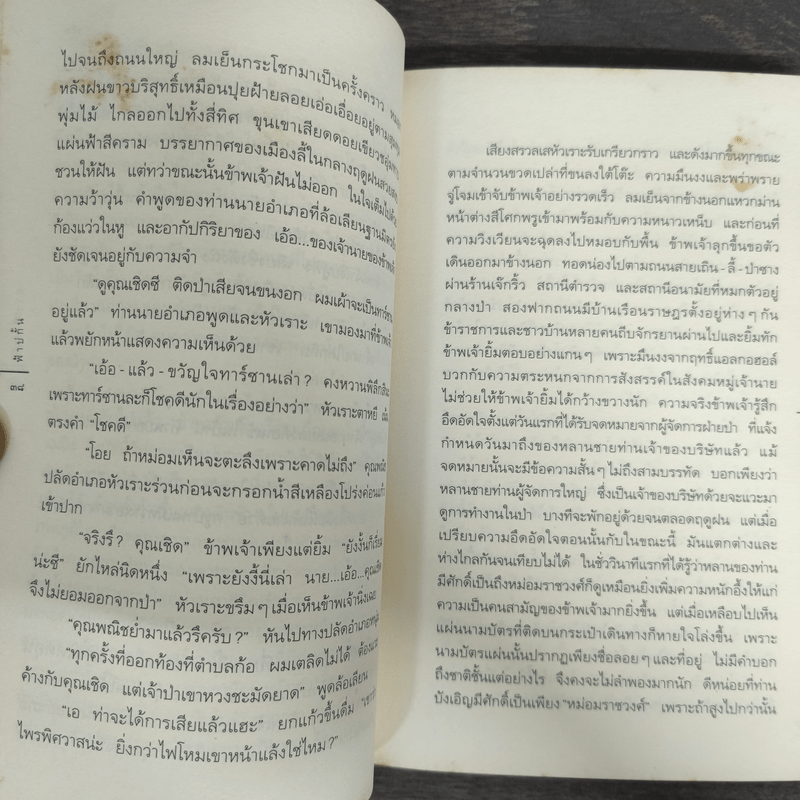 ไปจนถึงถนนใหญ่ ลมเย็นกระโชกมาเป็นครั้งคราว
หลังฝนขาวบริสุทธิ์เหมือนปุยฝ้ายลอยเอ่อเอื่อยอยู่ตาม
พุ่มไม้ ไกลออกไปทั้งสี่ทิศ ขุนเขาเสียดดอยเขียวชอุ่ม
แผ่นฟ้าสีคราม บรรยากาศของเมืองลี้ในกลางฤดูฝนสวยสด
ชวนให้ฝัน แต่ทว่าขณะนั้นข้าพเจ้าฝันไม่ออก ในใจเต็มไปด้วย
ความว้าวุ่น คำพูดของท่านนายอำเภอที่ล้อเลียนฐานมิตร
ก้องแว่วในหู และอากัปกิริยาของ เอ้อ...ของเจ้านายของข้าพเจ้า
ยังชัดเจนอยู่กับความจำ
"ดูคุณเชิดซี ติดป่าเสียจนขนงอก ผมเผ้าจะเป็นทาร์ซาน
อยู่แล้ว" ท่านนายอำเภอพูดและหัวเราะ เขามองมาที่ข้าพเจ้า
แล้วพยักหน้าแสดงความเห็นด้วย
"เอ้อ - แล้ว - ขวัญใจทาร์ซานเล่า? คงหวานพิลึกสินะ
เพราะทาร์ซานละก็โชคดีนักในเรื่องอย่างว่า" หัวเราะตาหยี
ตรงคำ "โชคดี"
"โอย ถ้าหม่อมเห็นจะตะลึงเพราะคาดไม่ถึง" คุณพณิช
ปลัดอำเภอหัวเราะร่วนก่อนจะกรอกน้ำสีเหลืองโปร่งค่อนแก้ว
เข้าปาก
"จริงรึ? คุณเชิด" ข้าพเจ้าเพียงแต่ยิ้ม "ยังงั้นก็เรียบ
น่ะซี" ยักไหล่นิดหนึ่ง "เพราะยังงี้นี่เล่า นาย...เอ้อ...คุณเชิด
จึงไม่ยอมออกจากป่า" หัวเราะขรึมๆ เมื่อเห็นข้าพเจ้านิ่งเฉย
"คุณพณิชย่ำมาแล้วรึครับ?" หันไปทางปลัดอำเภอหนุ่ม
"ทุกครั้งที่ออกท้องที่ตำบลก้อ ผมเตลิดไม่ได้ ต้องแวะ
ค้างกับคุณเชิด แต่เจ้าป่าเขาหวงชะมัดยาด" พูดล้อเลียน
"เอ ท่าจะได้การเสียแล้วแฮะ" ยกแก้วขึ้นดื่ม
ไพรพิศวาสน่ะ ยิ่งกว่าไฟโหมเขาหน้าแล้งใช่ไหม?"
๓๘
ฟ้าปกั้น
เสียงสรวลเสหัวเราะรับเกรียวกราว และดังมากขึ้นทุกขณะ
ตามจำนวนขวดเปล่าที่ขนลงใต้โต๊ะ ความมึนงงและพร่าพราย
จู่โจมเข้าจับข้าพเจ้าอย่างรวดเร็ว ลมเย็นจากข้างนอกแหวกม่าน
หน้าต่างสีโศกพรูเข้ามาพร้อมกับความหนาวเหน็บ และก่อนที่
ความวิงเวียนจะฉุดลงไปหมอบกับพื้น ข้าพเจ้าลุกขึ้นขอตัว
เดินออกมาข้างนอก ทอดน่องไปตามถนนสายเถิน - ลี้ - ป่าซาง
ผ่านร้านเจ๊กริ้ว สถานีตำรวจ และสถานีอนามัยที่หมกตัวอยู่
กลางป่า สองฟากถนนมีบ้านเรือนราษฎรตั้งอยู่ห่างๆ กัน
ข้าราชการและชาวบ้านหลายคนถีบจักรยานผ่านไปและยิ้มทัก
ข้าพเจ้ายิ้มตอบอย่างแกนๆ เพราะมึนงงจากฤทธิ์แอลกอฮอล์
บวกกับความตระหนกจากการสังสรรค์ในสังคมหมู่เจ้านาย
ไม่ช่วยให้ข้าพเจ้ายิ้มได้กว้างขวางนัก ความจริงข้าพเจ้ารู้สึก
อึดอัดใจตั้งแต่วันแรกที่ได้รับจดหมายจากผู้จัดการฝ่ายป่า ที่แจ้ง
กำหนดวันมาถึงของหลานชายท่านเจ้าของบริษัทแล้ว แม้
จดหมายนั้นจะมีข้อความสั้นๆ ไม่ถึงสามบรรทัด บอกเพียงว่า
หลานชายท่านผู้จัดการใหญ่ ซึ่งเป็นเจ้าของบริษัทด้วยจะแวะมา
ดูการทำงานในป่า บางทีจะพักอยู่ด้วยจนตลอดฤดูฝน แต่เมื่อ
เปรียบความอึดอัดใจตอนนั้นกับในขณะนี้ มันแตกต่างและ
ห่างไกลกันจนเทียบไม่ได้ ในชั่ววินาทีแรกที่ได้รู้ว่าหลานของท่าน
มีศักดิ์เป็นถึงหม่อมราชวงศ์ก็ดูเหมือนยิ่งเพิ่มความหนักอึ้งให้แก่
ความเป็นคนสามัญของข้าพเจ้ามากยิ่งขึ้น แต่เมื่อเหลือบไปเห็น
แผ่นนามบัตรที่ติดบนกระเป๋าเดินทางก็หายใจโล่งขึ้น เพราะ
นามบัตรแผ่นนั้นปรากฏเพียงชื่อลอยๆ และที่อยู่ ไม่มีคำบอก
ถึงชาติชั้นแต่อย่างไร จึงคงจะไม่ลำพองมากนัก ดีหน่อยที่ท่าน
บังเอิญมีศักดิ์เป็นเพียง "หม่อมราชวงศ์" เพราะถ้าสูงไปกว่านั้น